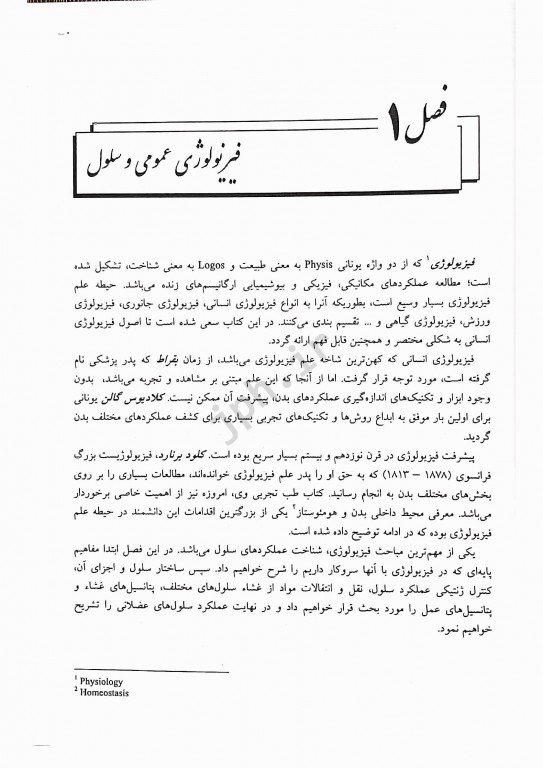 فصل ۱
فیزیولوژی عمومی و سلول
فیزیولوژی¹ که از دو واژه یونانی Physis به معنی طبیعت و Logos به معنی شناخت، تشکیل شده
است؛ مطالعه عملکردهای مکانیکی، فیزیکی و بیوشیمیایی ارگانیسم‌های زنده می‌باشد. حیطه علم
فیزیولوژی بسیار وسیع است، بطوریکه آنرا به انواع فیزیولوژی انسانی، فیزیولوژی جانوری، فیزیولوژی
ورزش، فیزیولوژی گیاهی و ... تقسیم بندی می‌کنند. در این کتاب سعی شده است تا اصول فیزیولوژی
انسانی به شکلی مختصر و همچنین قابل فهم ارائه گردد.
فیزیولوژی انسانی که کهن‌ترین شاخه علم فیزیولوژی می‌باشد، از زمان بقراط که پدر پزشکی نام
گرفته است، مورد توجه قرار گرفت. اما از آنجا که این علم مبتنی بر مشاهده و تجربه می‌باشد، بدون
وجود ابزار و تکنیک‌های اندازه‌گیری عملکردهای بدن، پیشرفت آن ممکن نیست. کلادیوس گالن یونانی
برای اولین بار موفق به ابداع روش‌ها و تکنیک‌های تجربی بسیاری برای کشف عملکردهای مختلف بدن
گردید.
پیشرفت فیزیولوژی در قرن نوزدهم و بیستم بسیار سریع بوده است. کلود برنارد، فیزیولوژیست بزرگ
فرانسوی (۱۸۷۸ – ۱۸۱۳) که به حق او را پدر علم فیزیولوژی خوانده‌اند، مطالعات بسیاری را بر روی
بخش‌های مختلف بدن به انجام رسانید. کتاب طب تجربی وی، امروزه نیز از اهمیت خاصی برخوردار
می‌باشد. معرفی محیط داخلی بدن و هومئوستاز² یکی از بزرگترین اقدامات این دانشمند در حیطه علم
فیزیولوژی بوده که در ادامه توضیح داده شده است.
یکی از مهم‌ترین مباحث فیزیولوژی، شناخت عملکردهای سلول می‌باشد. در این فصل ابتدا مفاهیم
پایه‌ای که در فیزیولوژی با آنها سروکار داریم را شرح خواهیم داد. سپس ساختار سلول و اجزای آن،
کنترل ژنتیکی عملکرد سلول، نقل و انتقالات مواد از غشاء سلول‌های مختلف، پتانسیل‌های غشاء و
پتانسیل‌های عمل را مورد بحث قرار خواهیم داد و در نهایت عملکرد سلول‌های عضلانی را تشریح
خواهیم نمود.
¹ Physiology
² Homeostasis
jph.ir